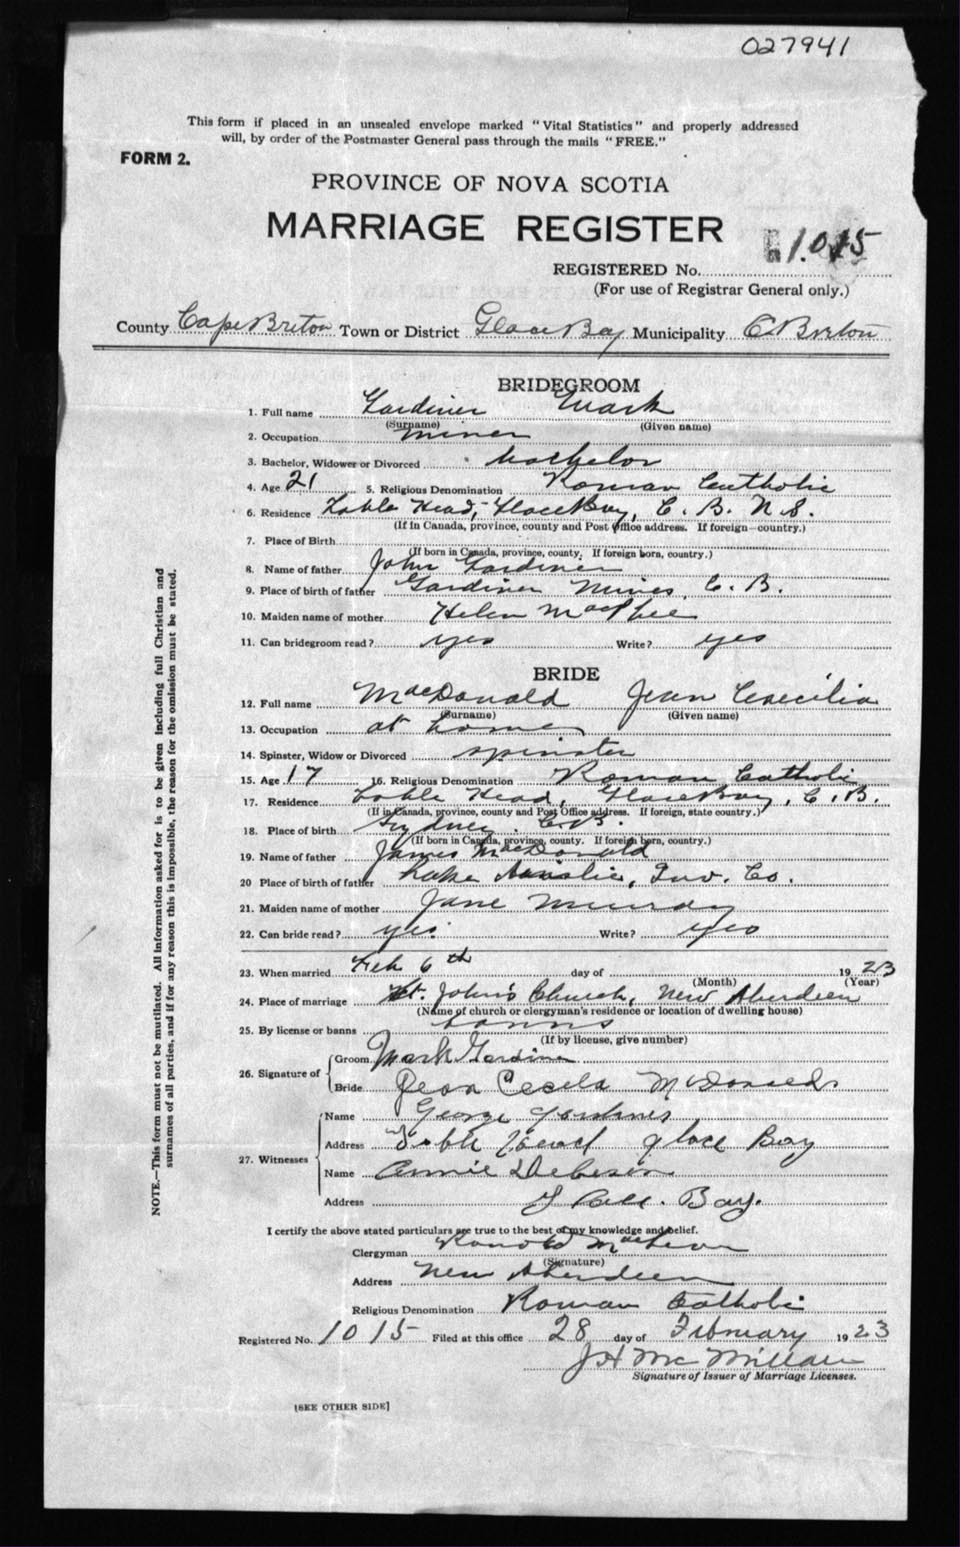 027941
This form if placed in an unsealed envelope marked "Vital Statistics" and properly addressed
will, by order of the Postmaster General pass through the mails "FREE."
FORM 2.
PROVINCE OF NOVA SCOTIA
MARRIAGE REGISTER
1015
REGISTERED No.
(For use of Registrar General only.)
County Cape Breton Town or District Glace Bay Municipality C Breton
BRIDEGROOM
1. Full name Gardiner Mark
(Surname) (Given name)
2. Occupation miner
3. Bachelor, Widower or Divorced bachelor
4. Age 21 5. Religious Denomination Roman Catholic
6. Residence Table Head, Glace Bay, C. B. N. S.
(If in Canada, province, county and Post Office address. If foreign—country.)
7. Place of Birth
(If born in Canada, province, county. If foreign born, country.)
8. Name of father John Gardiner
9. Place of birth of father Gardiner Mines, C. B.
10. Maiden name of mother Helen MacPhee
11. Can bridegroom read? yes Write? yes
BRIDE
12. Full name MacDonald Jean Caecilia
(Surname) (Given name)
13. Occupation at home
14. Spinster, Widow or Divorced spinster
15. Age 17 16. Religious Denomination Roman Catholic
17. Residence Table Head, Glace Bay, C. B.
(If in Canada, province, county and Post Office address. If foreign, state country.)
18. Place of birth Sydney C. B.
(If born in Canada, province, county. If foreign born, country.)
19. Name of father James MacDonald
20 Place of birth of father Lake Ainslie, Inv. Co.
21. Maiden name of mother Jane Murray
22. Can bride read? yes Write? yes
23. When married Feb 6th day of 1923
(Month) (Year)
24. Place of marriage St. John's Church, New Aberdeen
(Name of church or clergyman's residence or location of dwelling house)
25. By license or banns banns
(If by license, give number)
26. Signature of Groom Mark Gardiner
Bride Jean Cecela McDonald
27. Witnesses Name George Gardiner
Address Table Head Glace Bay
Name Annie
Address Glace Bay.
I certify the above stated particulars are true to the best of my knowledge and belief.
Clergyman Ronald
(Signature)
Address New Aberdeen
Religious Denomination Roman Catholic
Registered No. 1015 Filed at this office 28 day of February 1923
J H McMillan
Signature of Issuer of Marriage Licenses.
[SEE OTHER SIDE]
NOTE.—This form must not be mutilated. All information asked for is to be given including full Christian and
surnames of all parties, and if for any reason this is impossible, the reason for the omission must be stated.